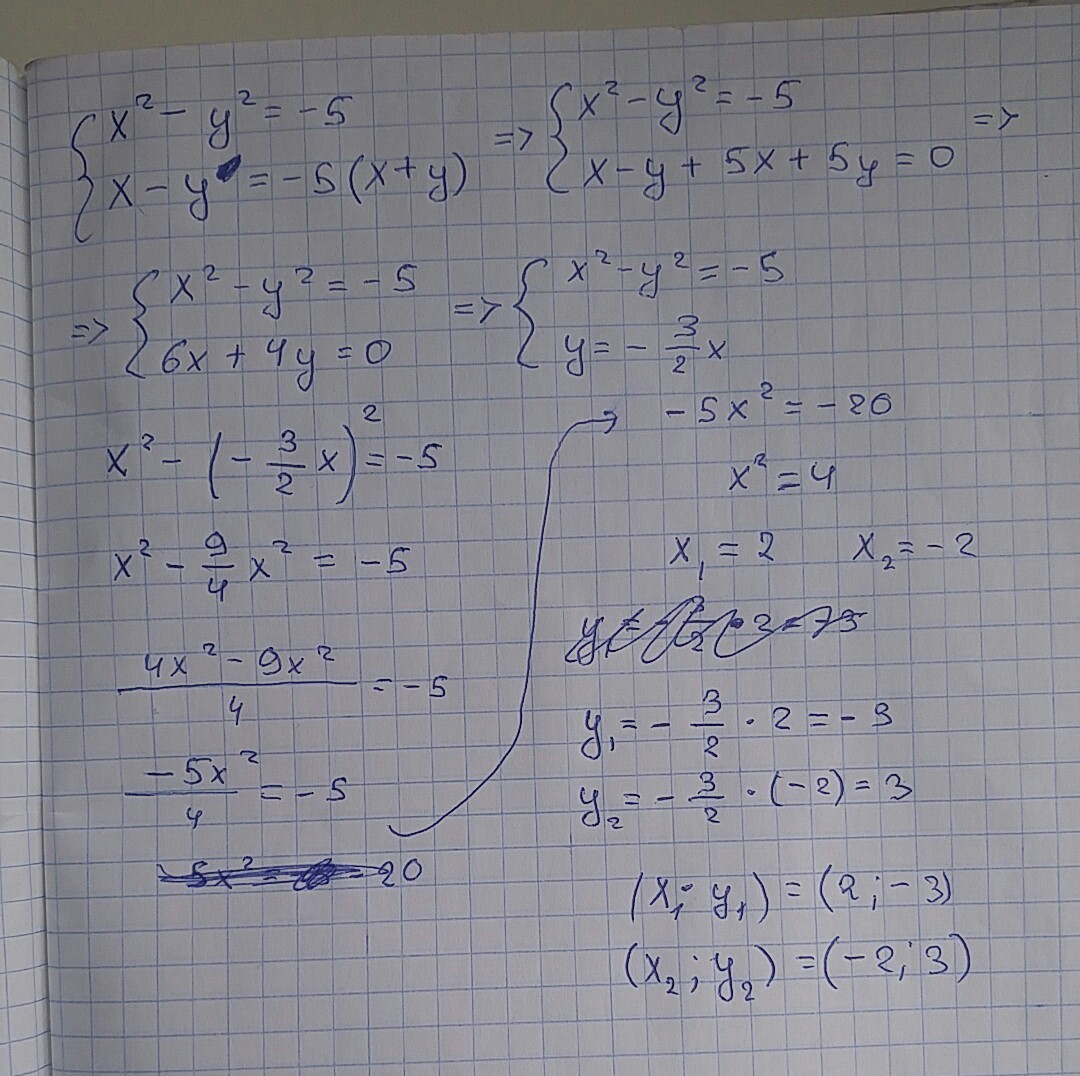 { x² - y² = -5 => { x² - y² = -5 =>
{ x - y = -5(x+y) { x - y + 5x + 5y = 0
=> { x² - y² = -5 => { x² - y² = -5
{ 6x + 4y = 0 { y = - 3/2 x
x² - (- 3/2 x)² = -5
x² - 9/4 x² = -5
(4x² - 9x²)/4 = -5
(-5x²)/4 = -5
5x² = 20
-5x² = -20
x² = 4
x₁ = 2 x₂ = -2
y₁ = - 3/2 · 2 = -3
y₂ = - 3/2 · (-2) = 3
(x₁; y₁) = (2; -3)
(x₂; y₂) = (-2; 3)